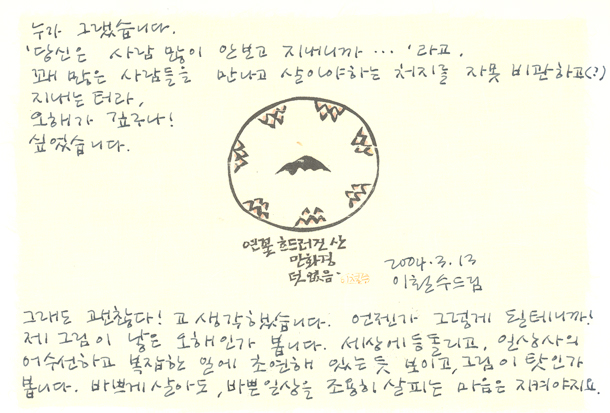 누가 그랬습니다.
'당신은 사람 많이 안보고 지내니까 … '라고.
꽤 많은 사람들을 만나고 살아야하는 처지를 자못 비관하고(?)
지내는 터라,
오해가 깊구나!
싶었습니다.
연꽃 흐드러진 산
만화경
덧없음.
2004. 3. 13
이철수드림
그래도 괜찮다! 고 생각했습니다. 언젠가 그렇게 될테니까!
제 그림이 낳은 오해인가 봅니다. 세상에 등돌리고, 일상사의
어수선하고 복잡한 일에 초연해 있는 듯 보이고, 그림이 탓인가
봅니다. 바쁘게 살아도, 바쁜 일상을 조용히 살피는 마음은 지켜야지요.